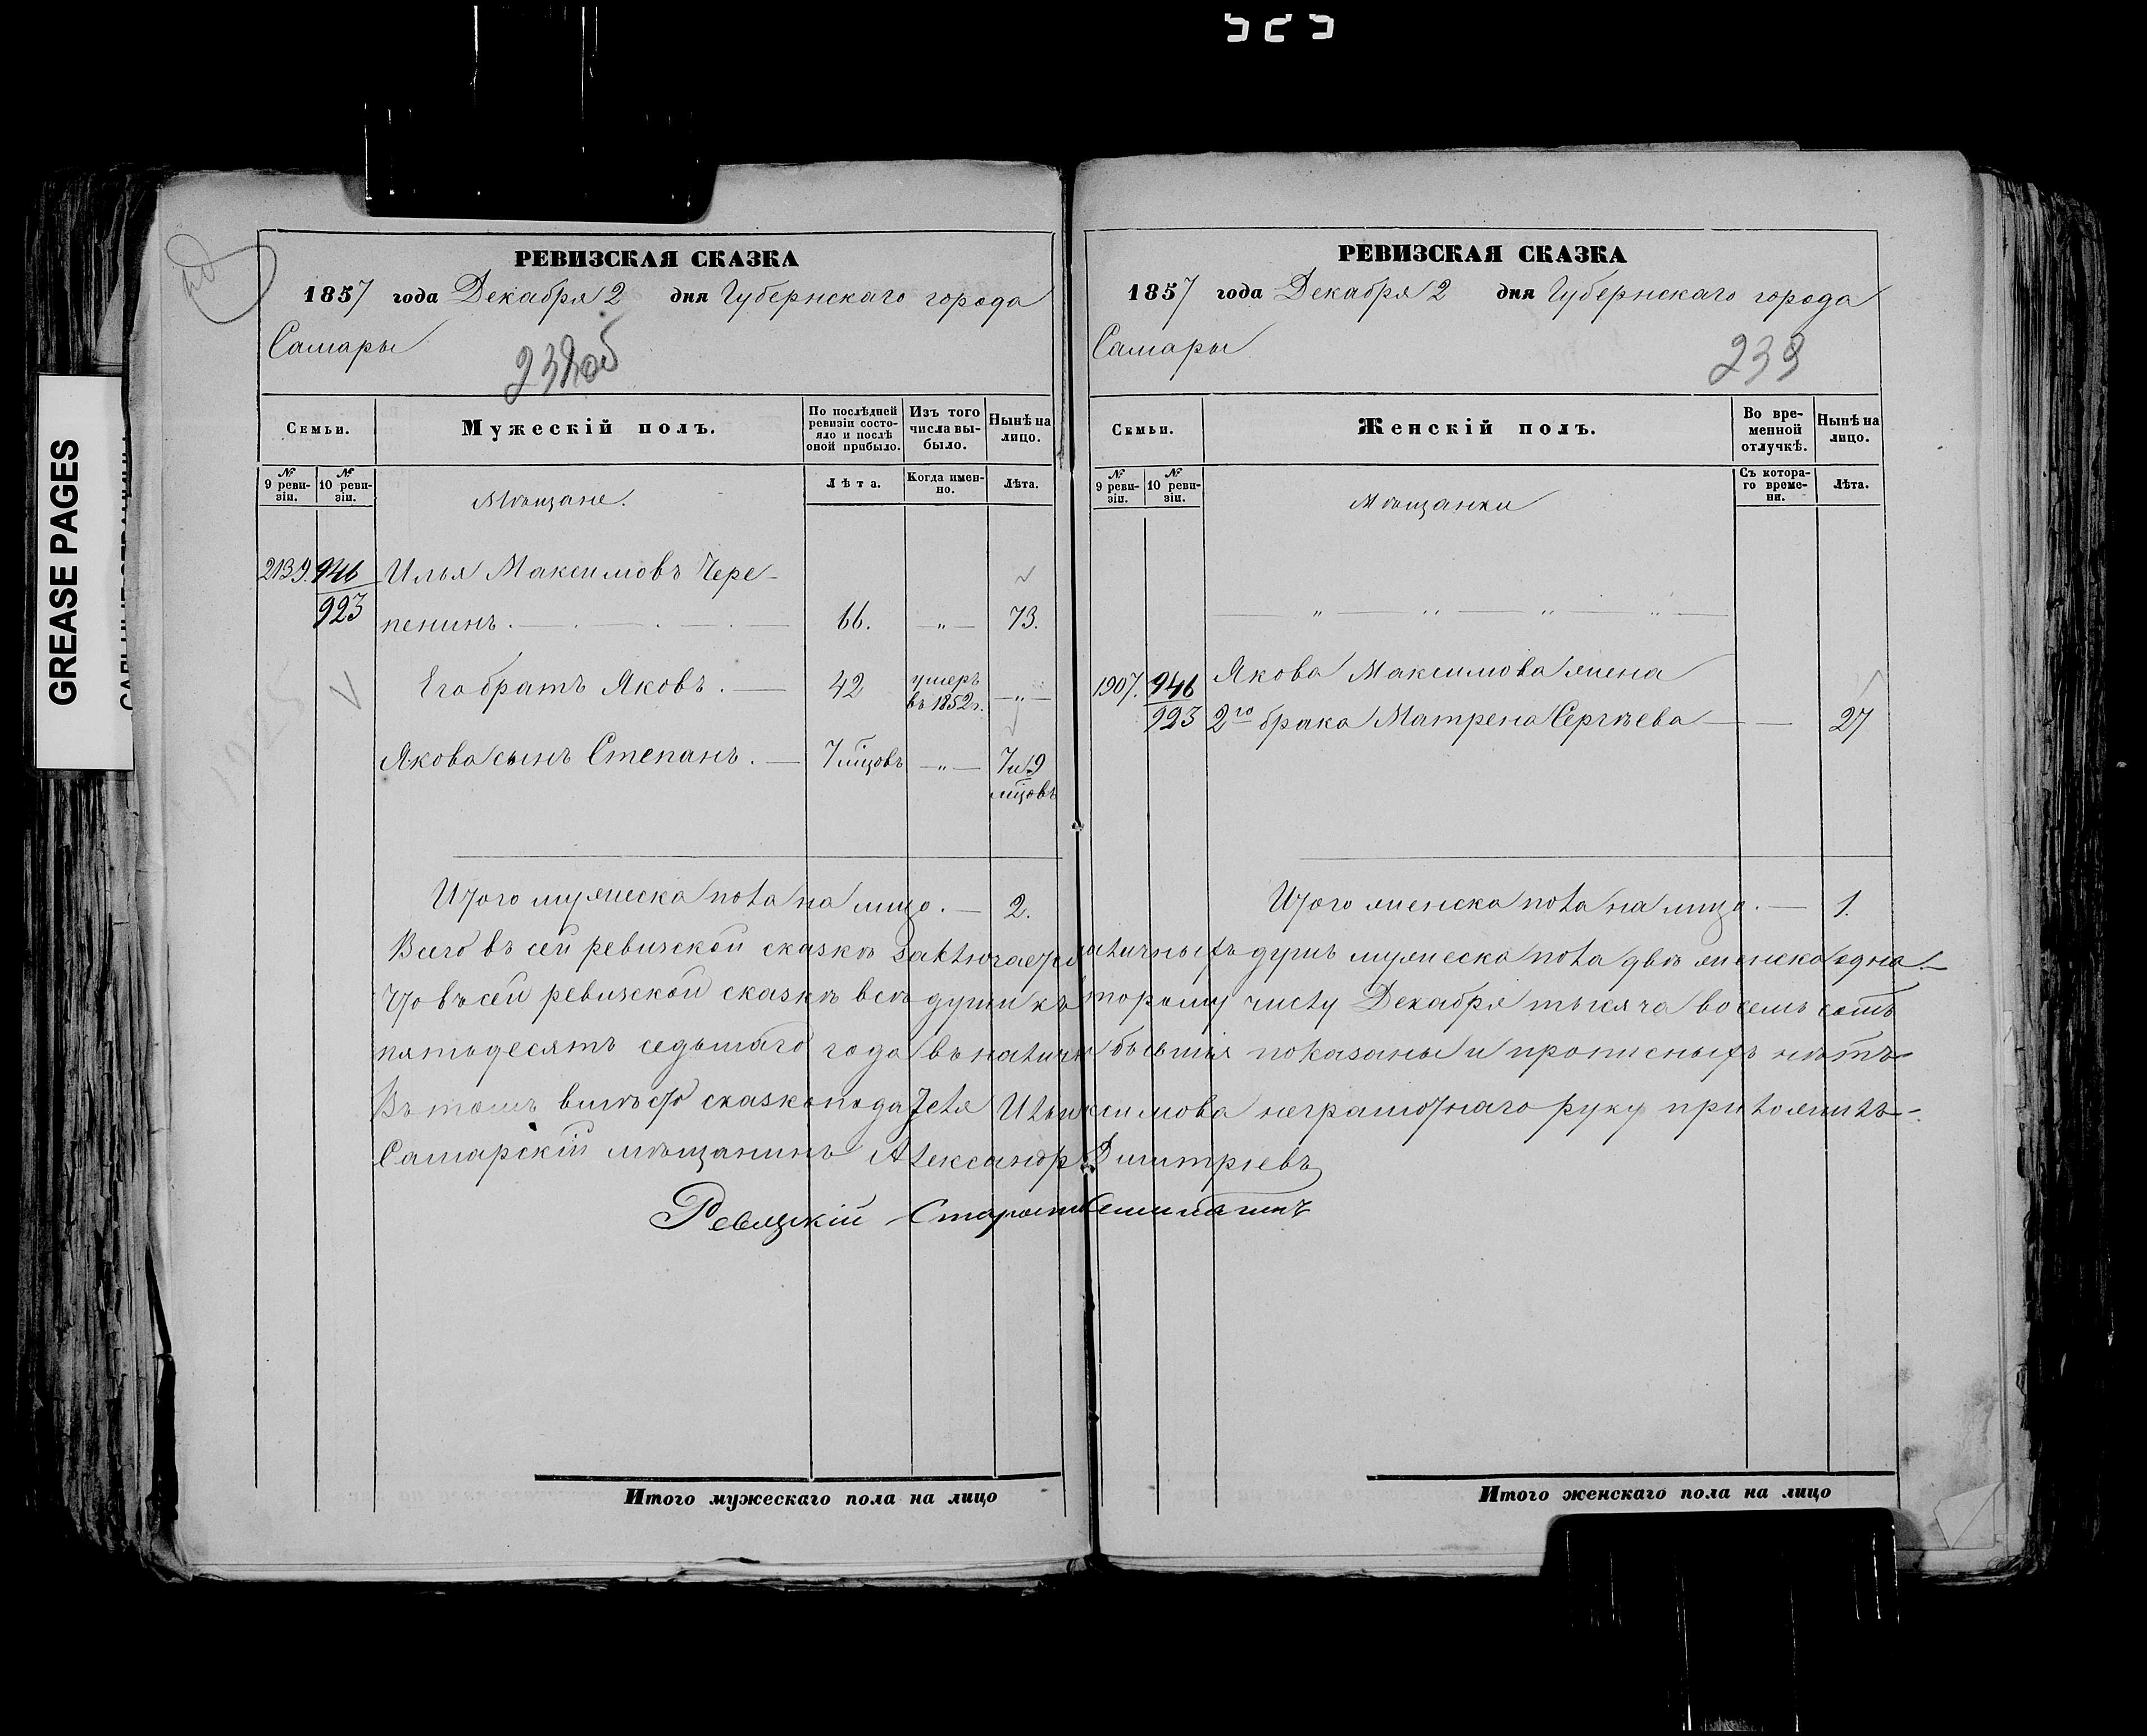 GREASE PAGES
РЕВИЗСКАЯ СКАЗКА
1857 года Декабря 2 дня Губернскаго города
Самары
232об
Семьи.
Мужескій полъ.
По послѣдней ревизіи состо-
яло и послѣ
оной прибыло.
Изъ того
числа вы-
было.
Нынѣ на
лицо.
№ 9 реви-
зіи.
№ 10 реви-
зіи.
Лѣта.
Когда имен-
но.
Лѣта.
Мѣщане.
2139. 946 Илья Максимовъ Чере-
923 пенинъ. 66. „ 73.
Его братъ Яковъ. 42 умеръ
въ 1852 г. „
Якова сынъ Степанъ. 7 мцовъ „ 7 и 9
мцовъ
Итого мужеска пола на лицо. 2.
РЕВИЗСКАЯ СКАЗКА
1857 года Декабря 2 дня Губернскаго города
Самары
233
Семьи.
Женскій полъ.
Во вре-
менной
отлучкѣ.
Нынѣ на
лицо.
№ 9 реви-
зіи.
№ 10 реви-
зіи.
Съ котора-
го време-
ни.
Лѣта.
Мѣщанки
„ „ „ „
1907. 946 Якова Максимова жена
923 2го брака Матрена Сергѣева 27
Итого женска пола на лицо. 1.
Всего въ сей ревизской сказкѣ заключается наличныхъ душъ мужеска пола двѣ женска одна.
Что въ сей ревизской сказкѣ всѣ души къ второму числу Декабря тысяча восемь сотъ
пятьдесятъ седьмаго года въ наличн бывшія показаны и прописныхъ нѣтъ
Въ томъ вмѣсто сказкоподателя Ильи ксимова неграмотнаго руку приложилъ
Самарскій мѣщанинъ Александръ Дмитріевъ
Ревизкій Староста
Итого мужескаго пола на лицо
Итого женскаго пола на лицо